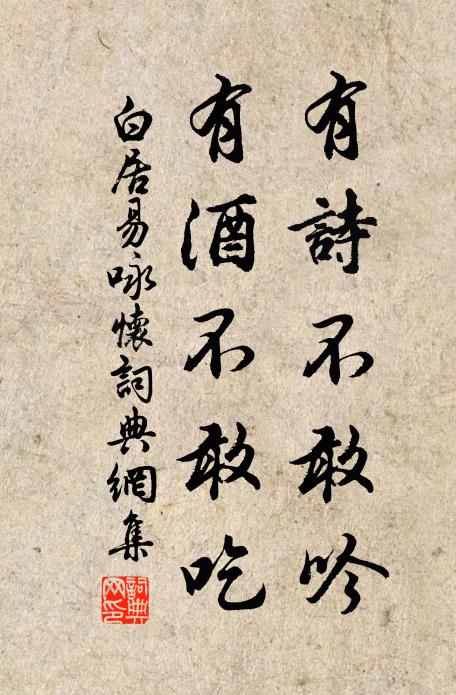 有詩不敢吟
有酒不敢吃
白居易咏懷詞典網集
詞典网印